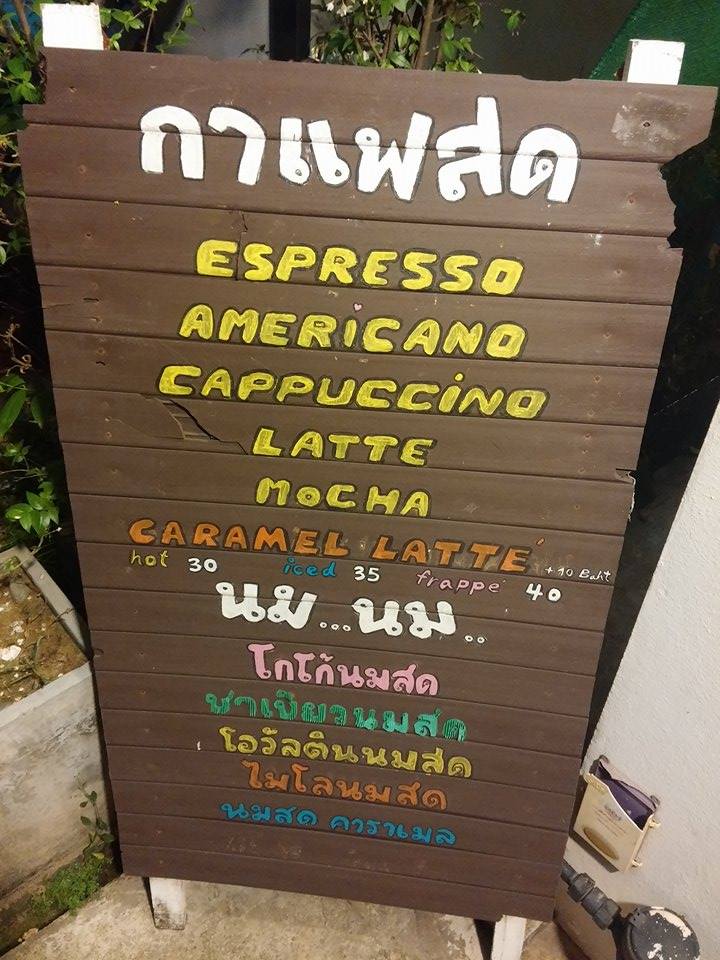 กาแฟสด
ESPRESSO
AMERiCANO
CAPPUCCiNO
LATTE
MOCHA
CARAMEL LATTE´ +10 Baht
hot 30 iced 35 frappe´ 40
นม...นม..
โกโก้นมสด
ชาเขียวนมสด
โอวัลตินนมสด
ไมโลนมสด
นมสด คาราเมล